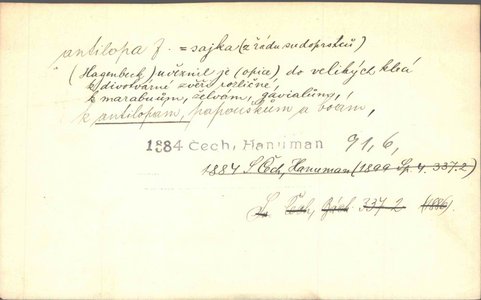 antilopa f. = sajka (z řádu sudoprstců)
(Hagenbeck) uvěznil je (opice) do velikých klecí
k divotvárné zvěři rozličné,
k marabuům, želvám, gaviálům,
k antilopám, papouškům a boám,
1884 Čech, Hanuman 91, 6,
1884 S Čech, Hanuman (1899 Sp. 4. 337.2)
Čech, 337 2 (1886).